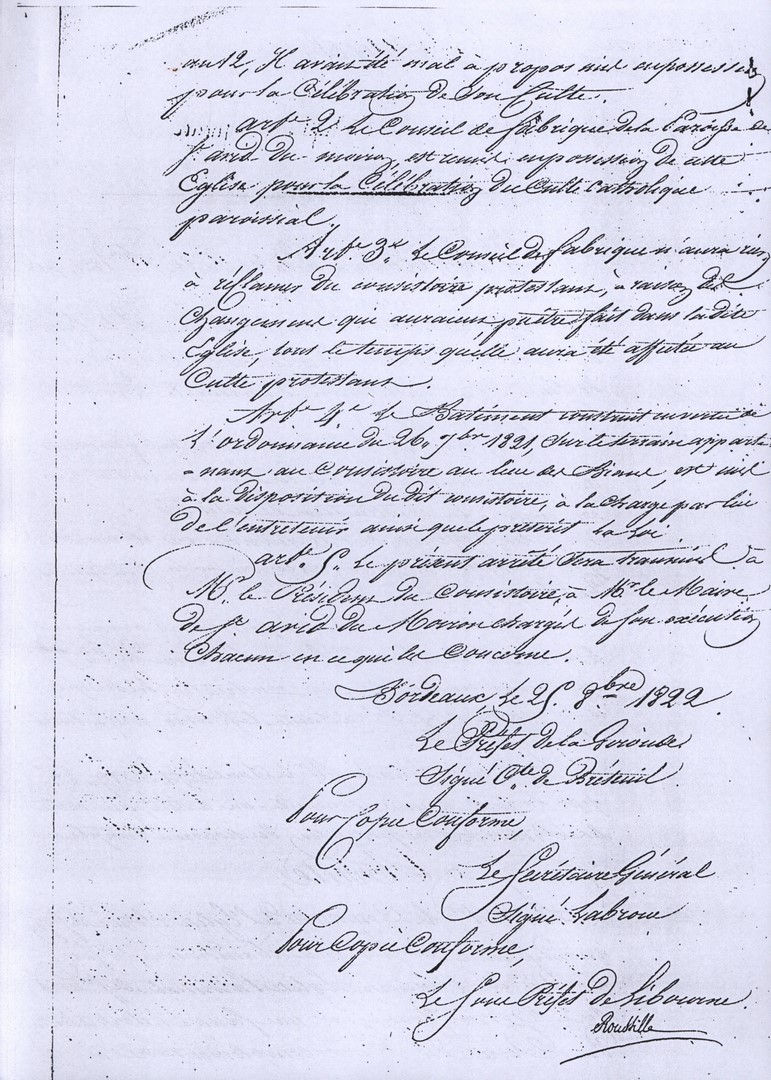 an 12, Il avait été mal à propos mis en possession
pour la Célébration de son Culte.
arte 2. Le Conseil de fabrique de la Paroisse de
St. avid du moiron, est remis en possession de cette
Eglise pour la Célébration du Culte catholique
paroissial.
Arte 3. Le Conseil de fabrique n'aura rien
à réclamer du consistoire protestant, à raison des
changements qui auraient pu être fait dans la dite
Eglise, tous le temps qu'elle aura été affectée au
Culte protestant.
Arte 4e Le Bâtiment construit en vertu de
L'ordonnance du 26. 7bre 1821, Sur le terrain apparte
=nant au Consistoire au lieu des Briand, est mis
à la disposition du dit consistoire, à la charge par lui
de l'entretenir ainsi que le prescrit la Loi.
arte. 5. Le présent arrêté sera transmis à
Mr. le Président du Consistoire, à Mr le Maire
de St avid du Moiron chargés de son exécution
Chacun en ce qui les Concerne.
Bordeaux, Le 25. 8bre 1822.
Le Préfet de la Gironde
Signé Cte de Breteuil
Pour Copie Conforme,
Le Secrétaire Général
Signé Labroue
Pour Copie Conforme,
Le Sous Préfet de Libourne.